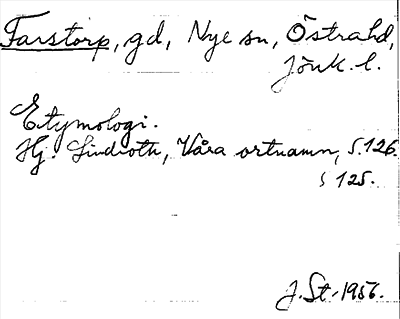 Farstorp, gd, Nye sn, Östrahd,
Jönk. l.
Etymologi.
Hj. Lindroth, Våra ortnamn, S. 126.
s 125.
J. St. 1956.